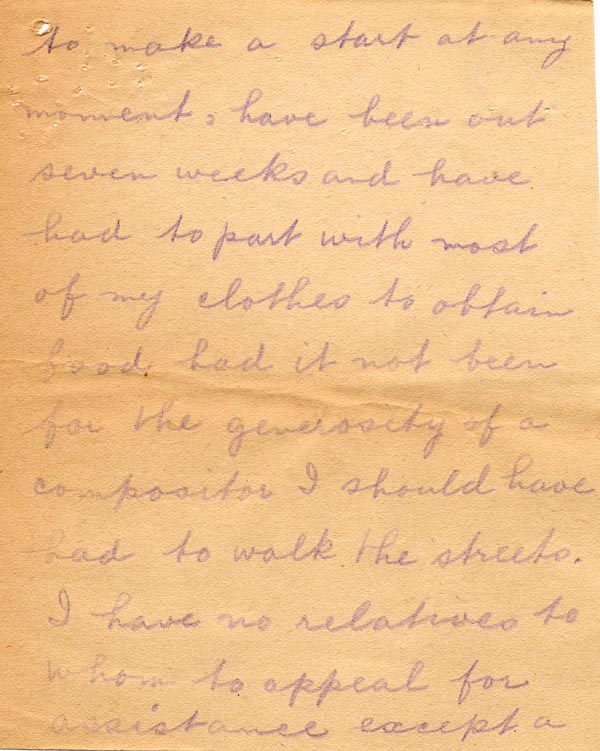 to make a start at any
moment, have been out
seven weeks and have
had to part with most
of my clothes to obtain
food had it not been
for the generosity of a
compositor I should have
had to walk the streets.
I have no relatives to
whom to appeal for
assistance except a